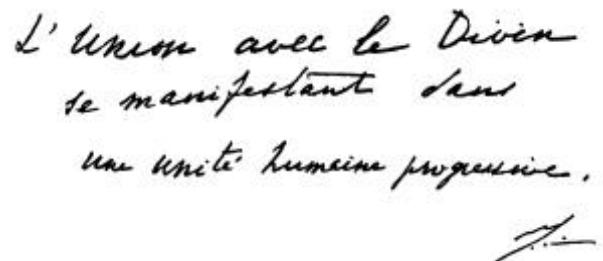 L'Union avec le Divin
se manifestant dans
une unité humaine progressive.